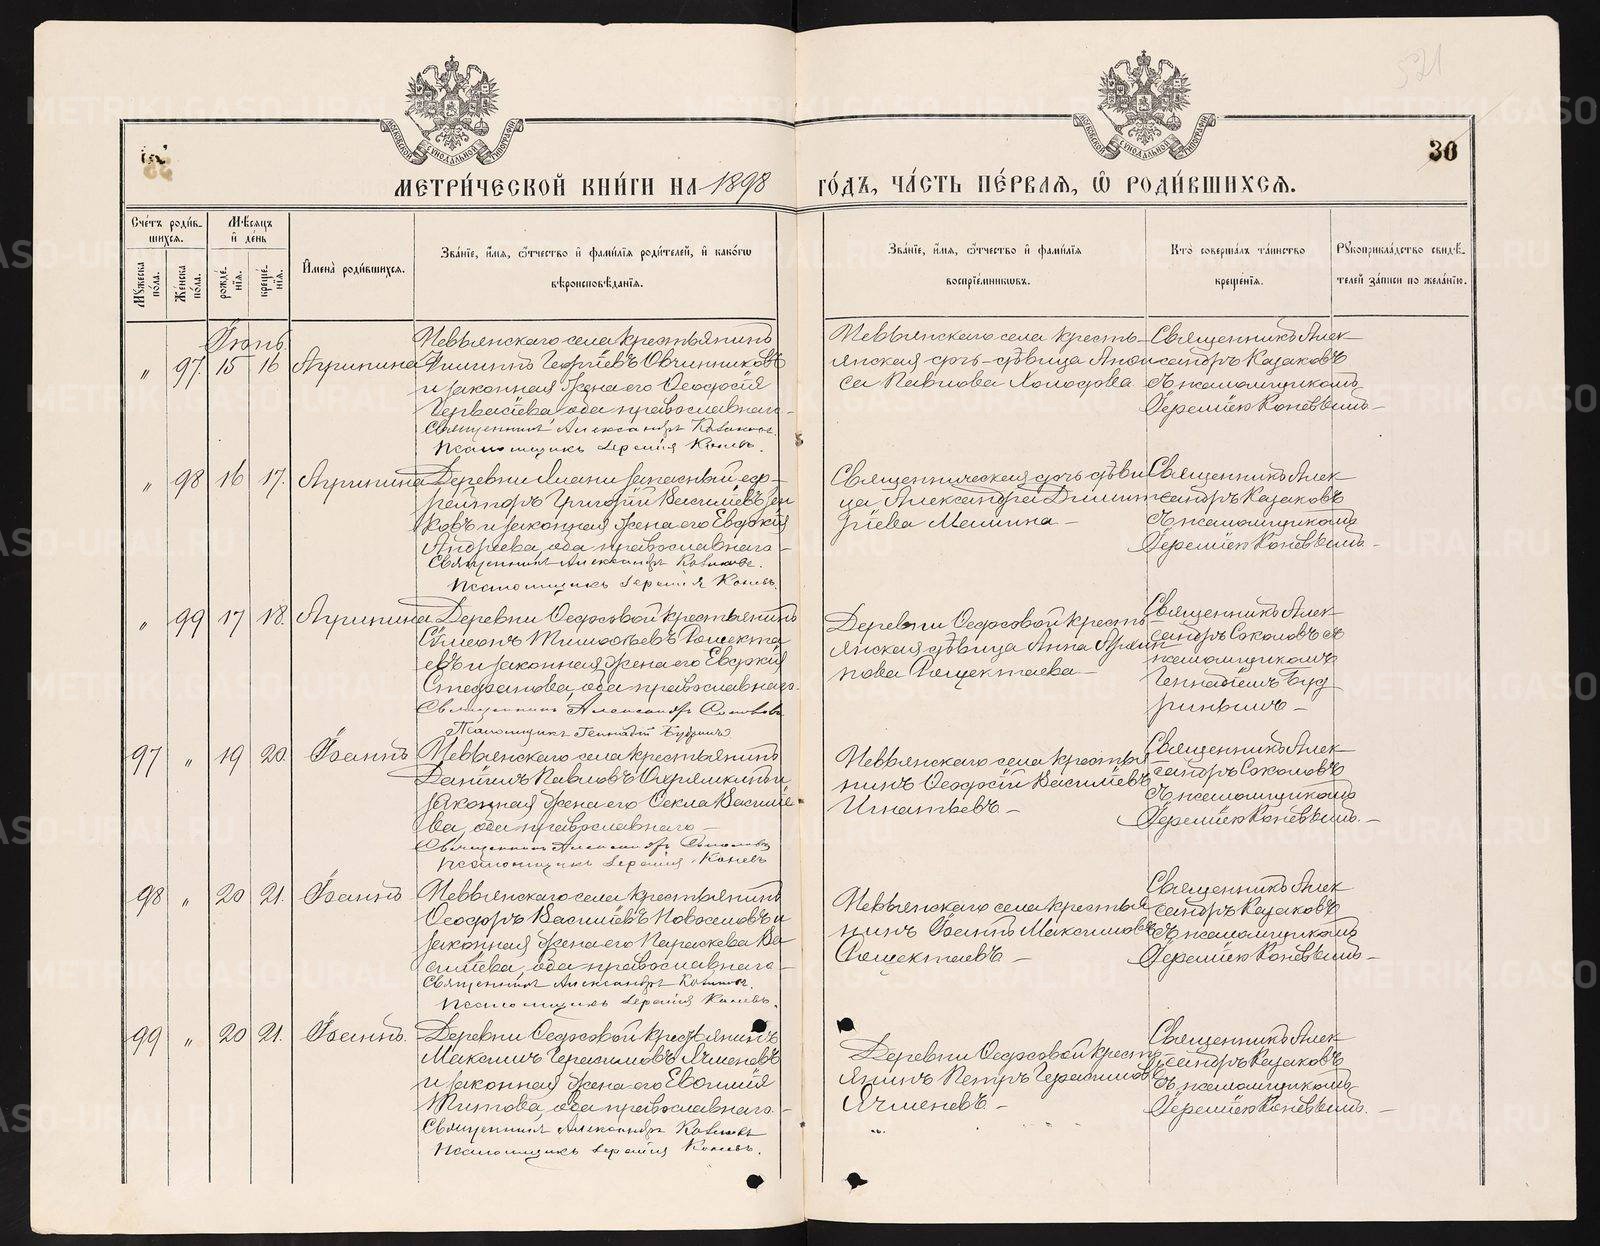 521
30
МЕТРИ́ЧЕСКОЙ КНИ́ГИ НА 1898 ГО́ДЪ, ЧА́СТЬ ПЕ́РВАЯ, Ѿ РОДИ́ВШИХСЯ.
Сче́тъ роди́в-
шихся.
Мѣ́сяцъ
и де́нь
Му́жеска по́ла.
Же́нска по́ла.
рожде́-
нія.
креще́-
нія.
И҆мена̀ роди́вшихся.
Зва́ніе, и҆́мя, ѻ҆́тчество и҆ фами́лія роди́телей, и҆ како́гѡ
вѣроисповѣ́данія.
Зва́ніе, и҆́мя, ѻ҆́тчество и҆ фами́лія
воспріе́мникѡвъ.
Кто̀ соверша́лъ та́инство
креще́нія.
Рꙋкоприкла́дство свидѣ́-
телей за́писи по жела́нію.
Іюнь.
" 97. 15 16 Агрипина
Невьянскаго села крестьянинъ
Филиппъ Георгіевъ Овчинниковъ
и законная жена его Ѳеодосія
Гервасіева, оба православнаго. –
Священникъ Александръ Казаковъ.
Псаломщикъ Іеремія Коневъ.
Невьянскаго села кресть-
янская дочь – дѣвица Анфи
са Павлова Холодова
Священникъ Алек-
сандръ Казаковъ
съ псаломщикомъ
Іереміею Коневымъ –
" 98 16 17. Агрипина
Деревни Ялани запасный еф-
рейторъ Григорій Васильевъ Зен
ковъ и законная жена его Евдокія
Андреева, оба православнаго –
Священникъ Александръ Казаковъ.
Псаломщикъ Іеремія Коневъ.
Священническая дочь дѣви
ца Александра Димит
ріева Мамина –
Священникъ Алек
сандръ Казаковъ
съ псаломщикомъ
Іереміею Коневымъ. –
" 99 17 18. Агрипина
Деревни Ѳедосовой крестьянинъ
Сѵмеонъ Тимоѳеевъ Рощекта
евъ и законная жена его Евдокія
Стефанова, оба православнаго.
Священникъ Александръ Соколовъ.
Псаломщикъ Геннадій Будринъ
Деревни Ѳедосовой кресть
янская дѣвица Анна
нова Рощектаева –
Священникъ Алек
сандръ Соколовъ съ
псаломщикомъ
Геннадіемъ Буд
ринымъ –
97 " 19 20. Іоаннъ
Невьянскаго села крестьянинъ
Даніилъ Павловъ Охрямкинъ и
законная жена его Ѳекла Василіе
ва, оба православнаго –
Священникъ Александръ Соколовъ
Псаломщикъ Іеремія Коневъ
Невьянскаго села крестья
нинъ Ѳеодосій Василіевъ
Игнатьевъ –
Священникъ Алек
сандръ Соколовъ
съ псаломщикомъ
Іереміею Коневымъ. –
98 " 20 21. Іоаннъ
Невьянскаго села крестьянинъ
Ѳеодоръ Василіевъ Новоселовъ и
законная жена его Параскева Ва
силіева, оба православнаго –
Священникъ Александръ Казаковъ.
Псаломщикъ Іеремія Коневъ.
Невьянскаго села крестья
нинъ Іоаннъ Максимовъ
Рощектаевъ –
Священникъ Алек
сандръ Казаковъ
съ псаломщикомъ
Іереміею Коневымъ –
99 " 20 21. Іоаннъ.
Деревни Ѳедосовой крестьянинъ
Максимъ Герасимовъ Ячменевъ
и законная жена его Евѳимія
Титова, оба православнаго. –
Священникъ Александръ Казаковъ
Псаломщикъ Іеремія Коневъ.
Деревни Ѳедосовой кресть
янинъ Петръ Герасимовъ
Ячменевъ –
Священникъ Алек
сандръ Казаковъ
съ псаломщикомъ
Іереміею Коневымъ. –
METRIKI.GASO-URAL.RU